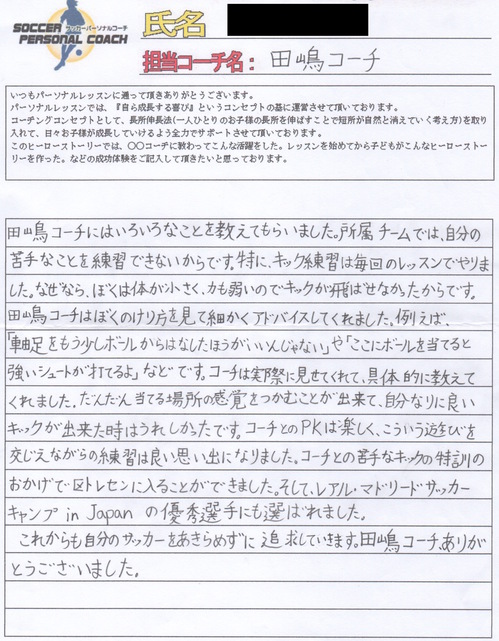 SOCCER サッカーパーソナルコーチ
PERSONAL COACH
氏名
担当コーチ名： 田嶋コーチ
いつもパーソナルレッスンに通って頂きありがとうございます。
パーソナルレッスンでは、『自ら成長する喜び』というコンセプトの基に運営させて頂いております。
コーチングコンセプトとして、長所伸長法(一人ひとりのお子様の長所を伸ばすことで短所が自然と消えていく考え方)を取り
入れて、日々お子様が成長していけるよう全力でサポートさせて頂いております。
このヒーローストーリーでは、〇〇コーチに教わってこんな活躍をした。レッスンを始めてから子どもがこんなヒーローストー
リーを作った。などの成功体験をご記入して頂きたいと思っております。
田嶋コーチにはいろいろなことを教えてもらいました。所属チームでは、自分の
苦手なことを練習できないからです。特に、キック練習は毎回のレッスンでやりま
した。なぜなら、ぼくは体が小さく、力も弱いのでキックが飛ばせなかったからです。
田嶋コーチはぼくのけり方を見て細かくアドバイスしてくれました。例えば、
「軸足をもう少しボールからはなしたほうがいいんじゃない」や「ここにボールを当てると
強いシュートが打てるよ」などです。コーチは実際に見せてくれて、具体的に教えて
くれました。だんだん当てる場所の感覚をつかむことが出来て、自分なりに良い
キックが出来た時はうれしかったです。コーチとのPKは楽しく、こういう遊びを
交じえながらの練習は良い思い出になりました。コーチとの苦手なキックの特訓の
おかげで区トレセンに入ることができました。そして、レアル・マドリードサッカー
キャンプ in Japan の優秀選手にも選ばれました。
これからも自分のサッカーをあきらめずに追求していきます。田嶋コーチ、ありが
とうございました。